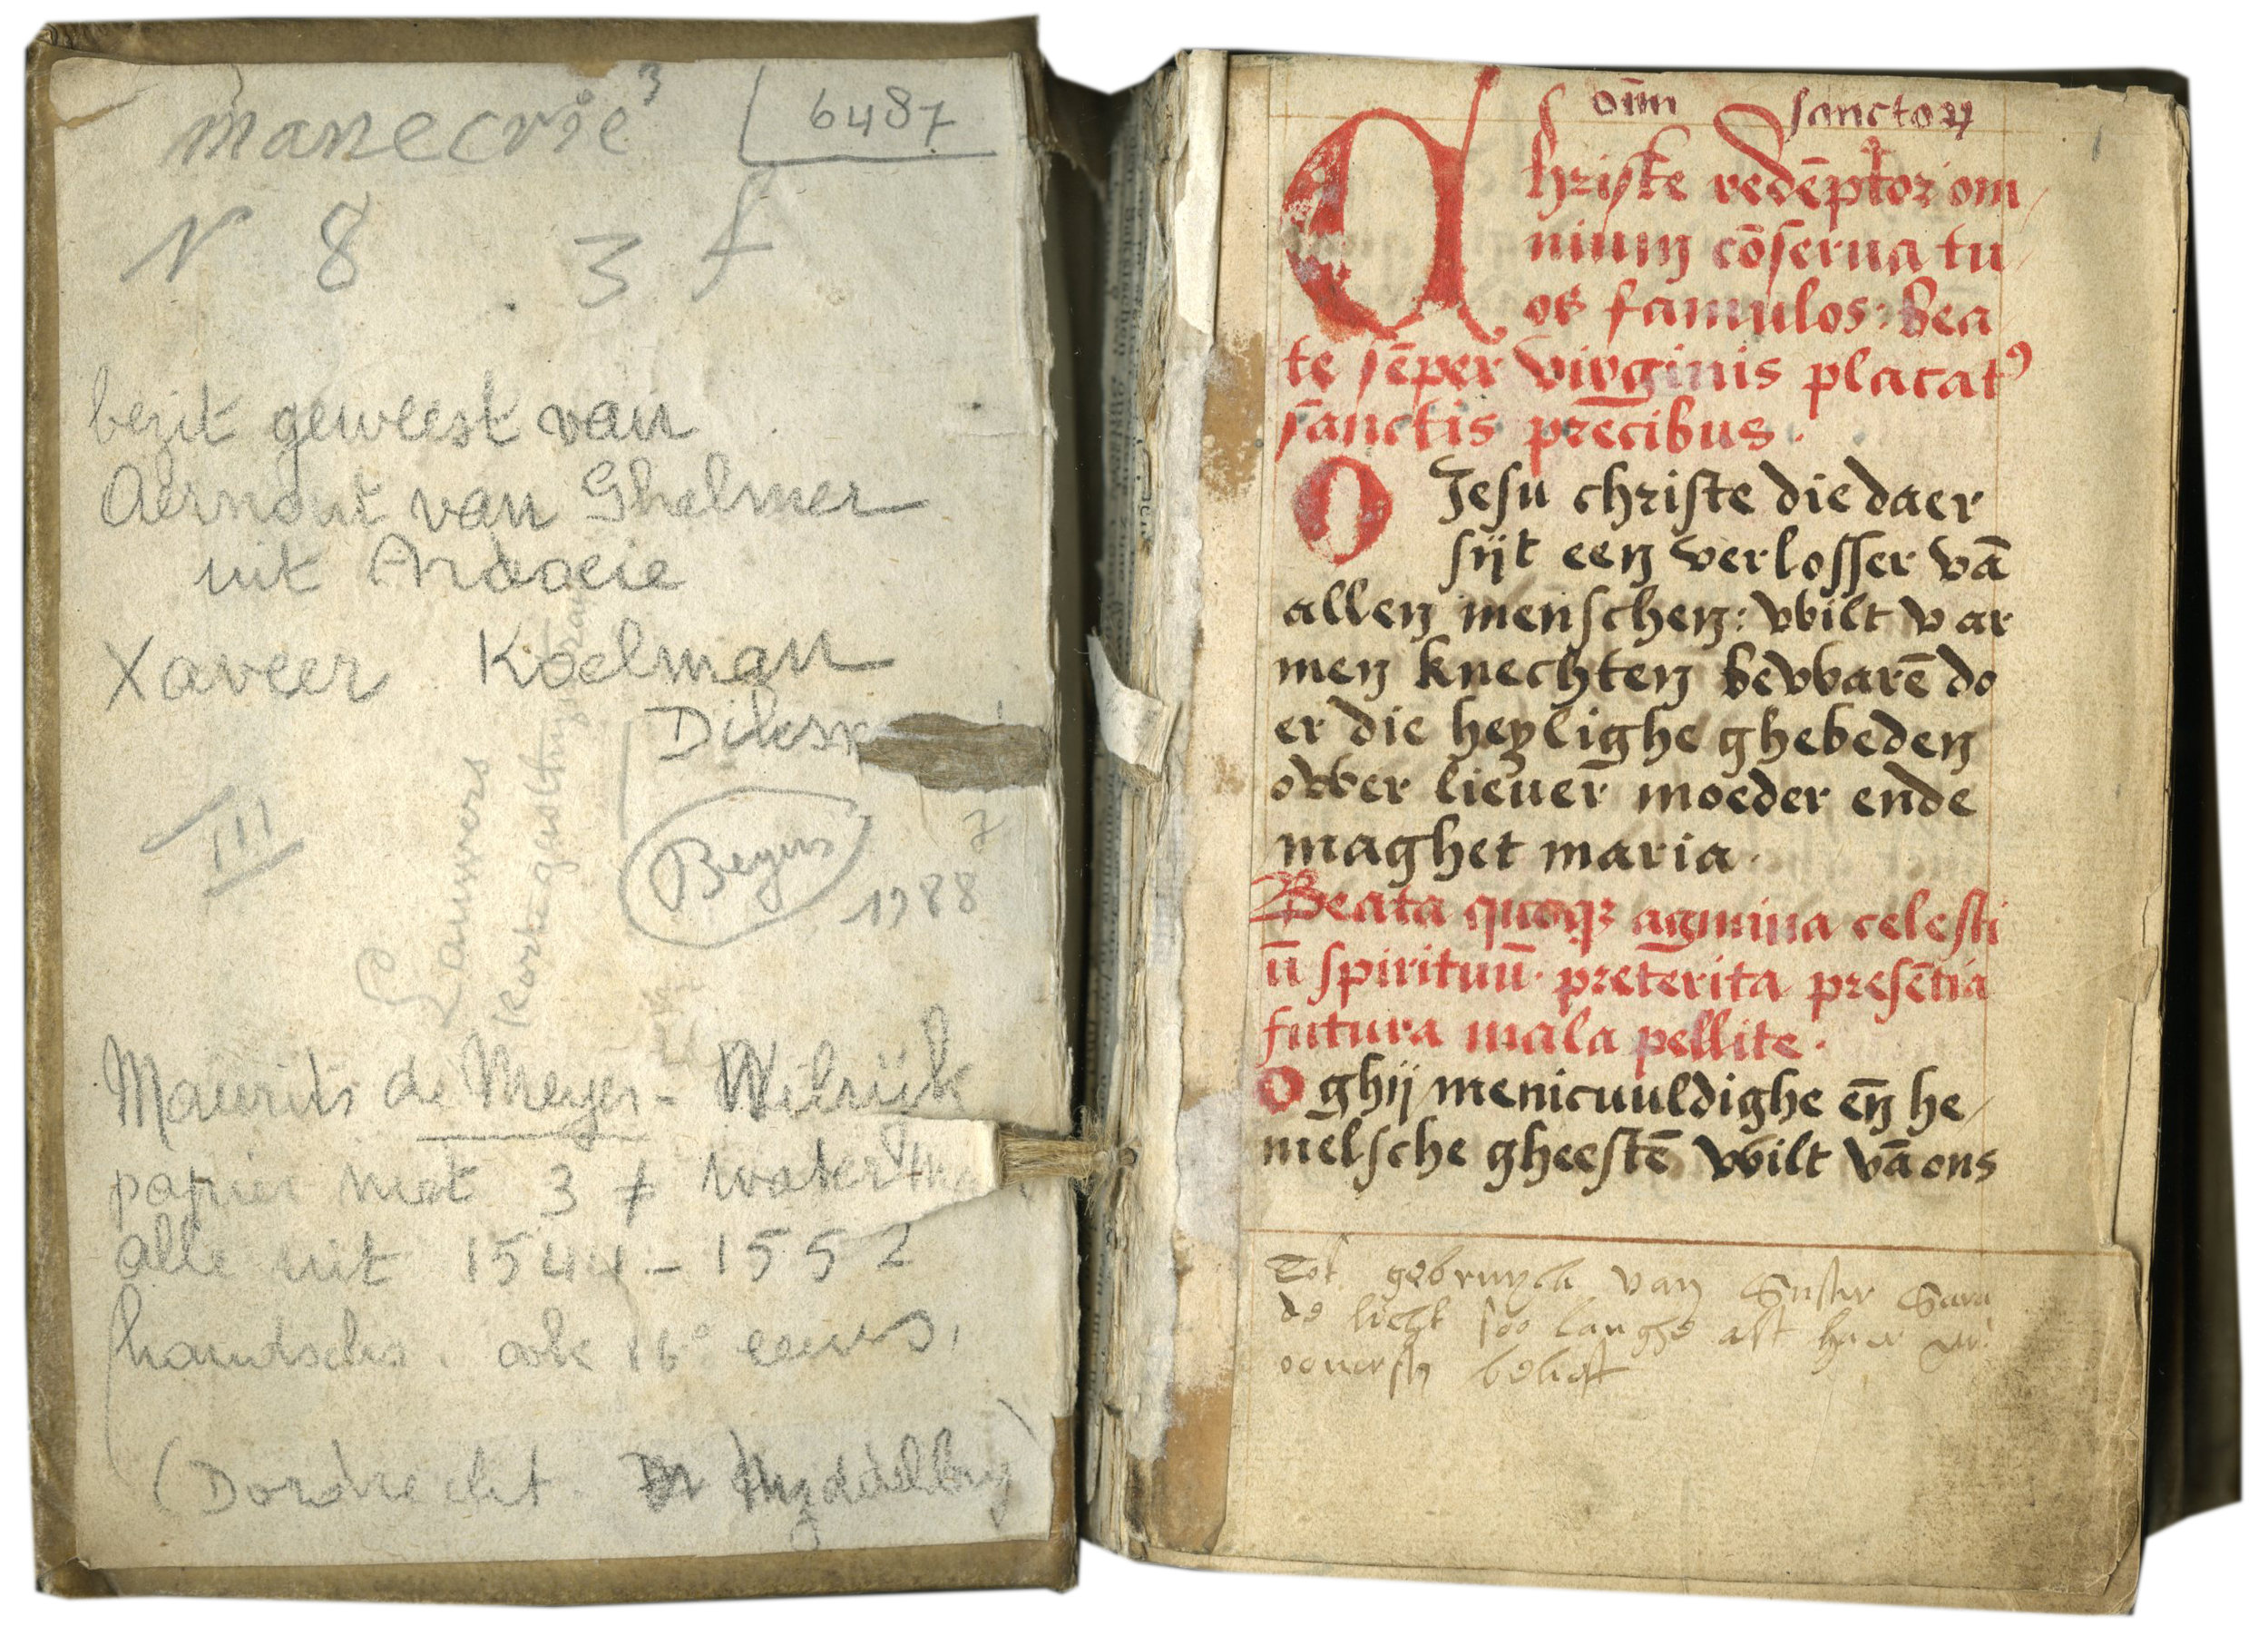 manecrie 3
6487
N 8 3 f
bezit geweest van
Aernout van Ghelmer
uit Ardooie
Xaveer Koelman
Diksm
III
Lauwers
Korte gasthuisstraat
Beyers
7
1988
Maurits de Meyer - Wilrijk
papier met 3 ≠ waterm
alle uit 1544 - 1552
handschr. ook 16e eeuws,
(Dordrecht.
oim̄ sanctoꝝ
1
Christe redēptor om
nium cōserua tu
os famulos: bea
te sēper virginis placatꝰ
sanctis precibus.
O Jesu christe die daer
sijt een verlosser vā
allen menschen: wilt v ar
men knechten bewarē do
er die heylighe ghebeden
ower lieuer moeder ende
maghet maria.
Beata quoqꝫ agmina celesti
ū spirituū. preterita presētia
futura mala pellite.
O ghij menicuuldighe eñ he
melsche gheestē wilt vā ons
Tot gebruyck van Suster Sara
de licht soo langhe alst haer
oouersten belieft